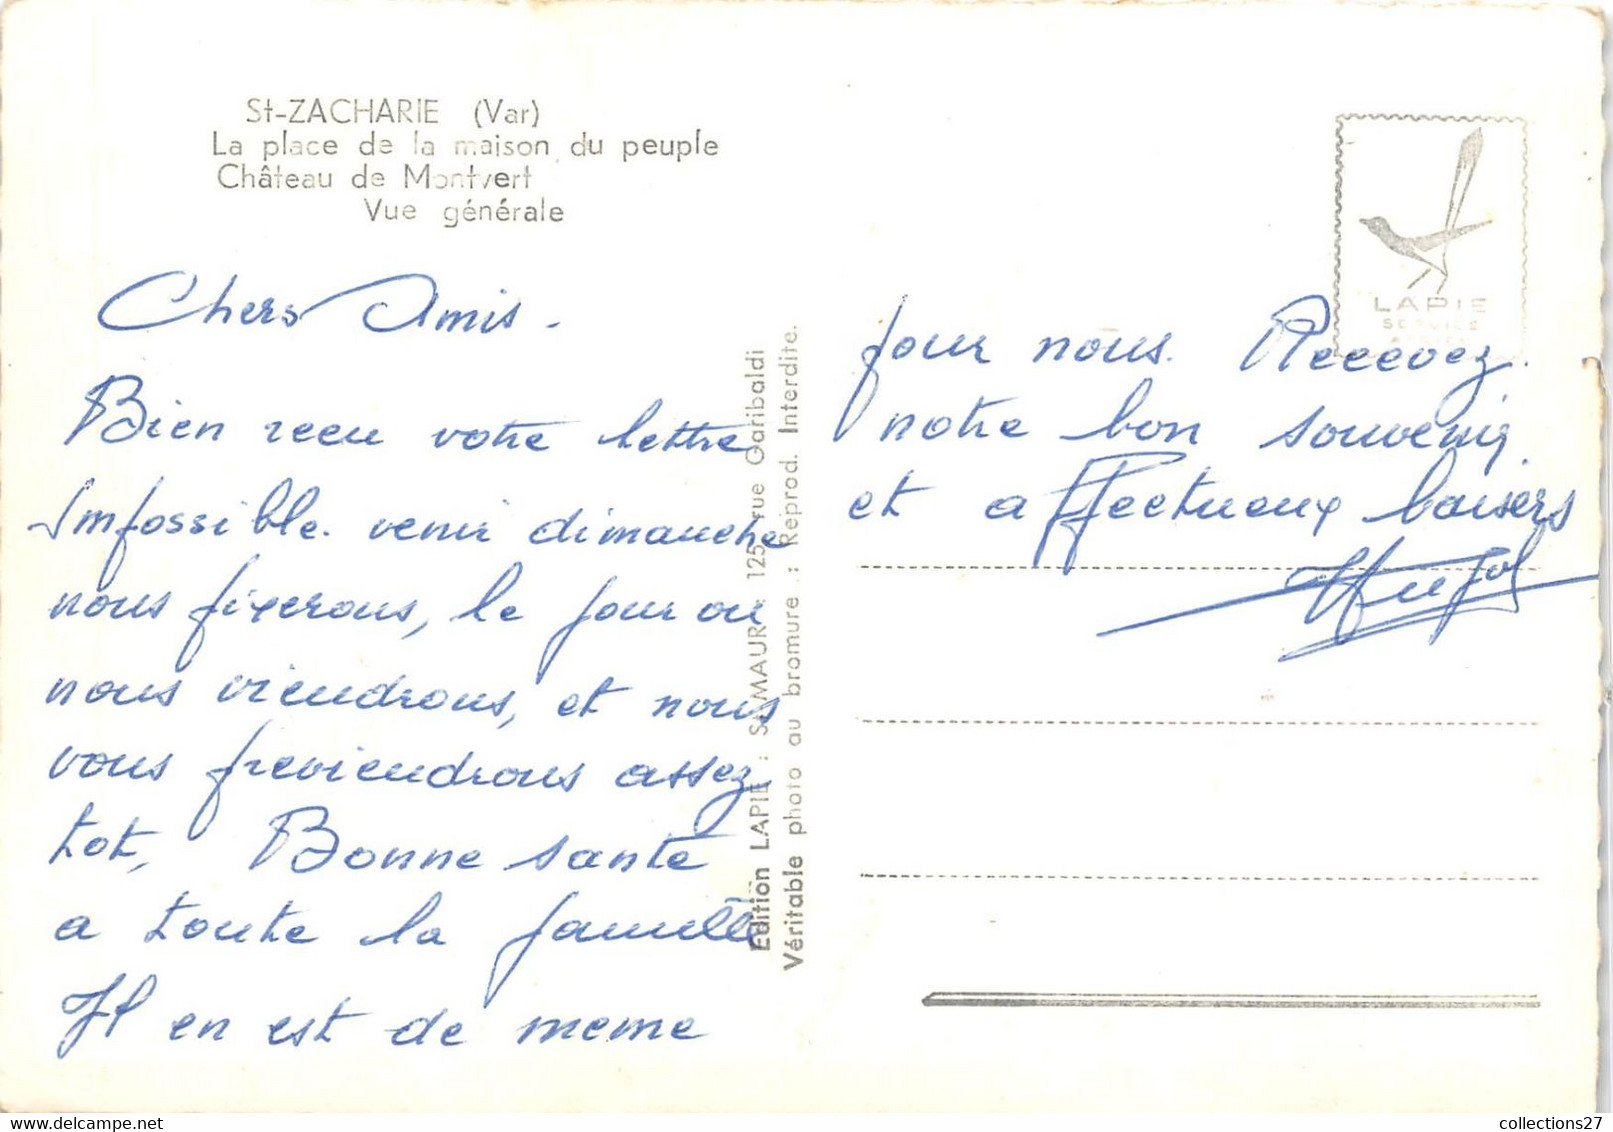 St-ZACHARIE (Var)
La place de la maison du peuple
Château de Montvert
Vue générale
Chers Amis -
Bien recu votre lettre
Impossible. venir dimanche
nous fixerons, le jour ou
nous viendrons, et nous
vous previendrons assez
tot, Bonne sante
a toute la famille
Il en est de meme
Edition LAPIE : St-MAUR : 125, rue Garibaldi
Véritable photo au bromure : Reprod. Interdite.
LAPIE
SERVICE
pour nous. Recevez
notre bon souvenir
et affectueux baisers
collections27